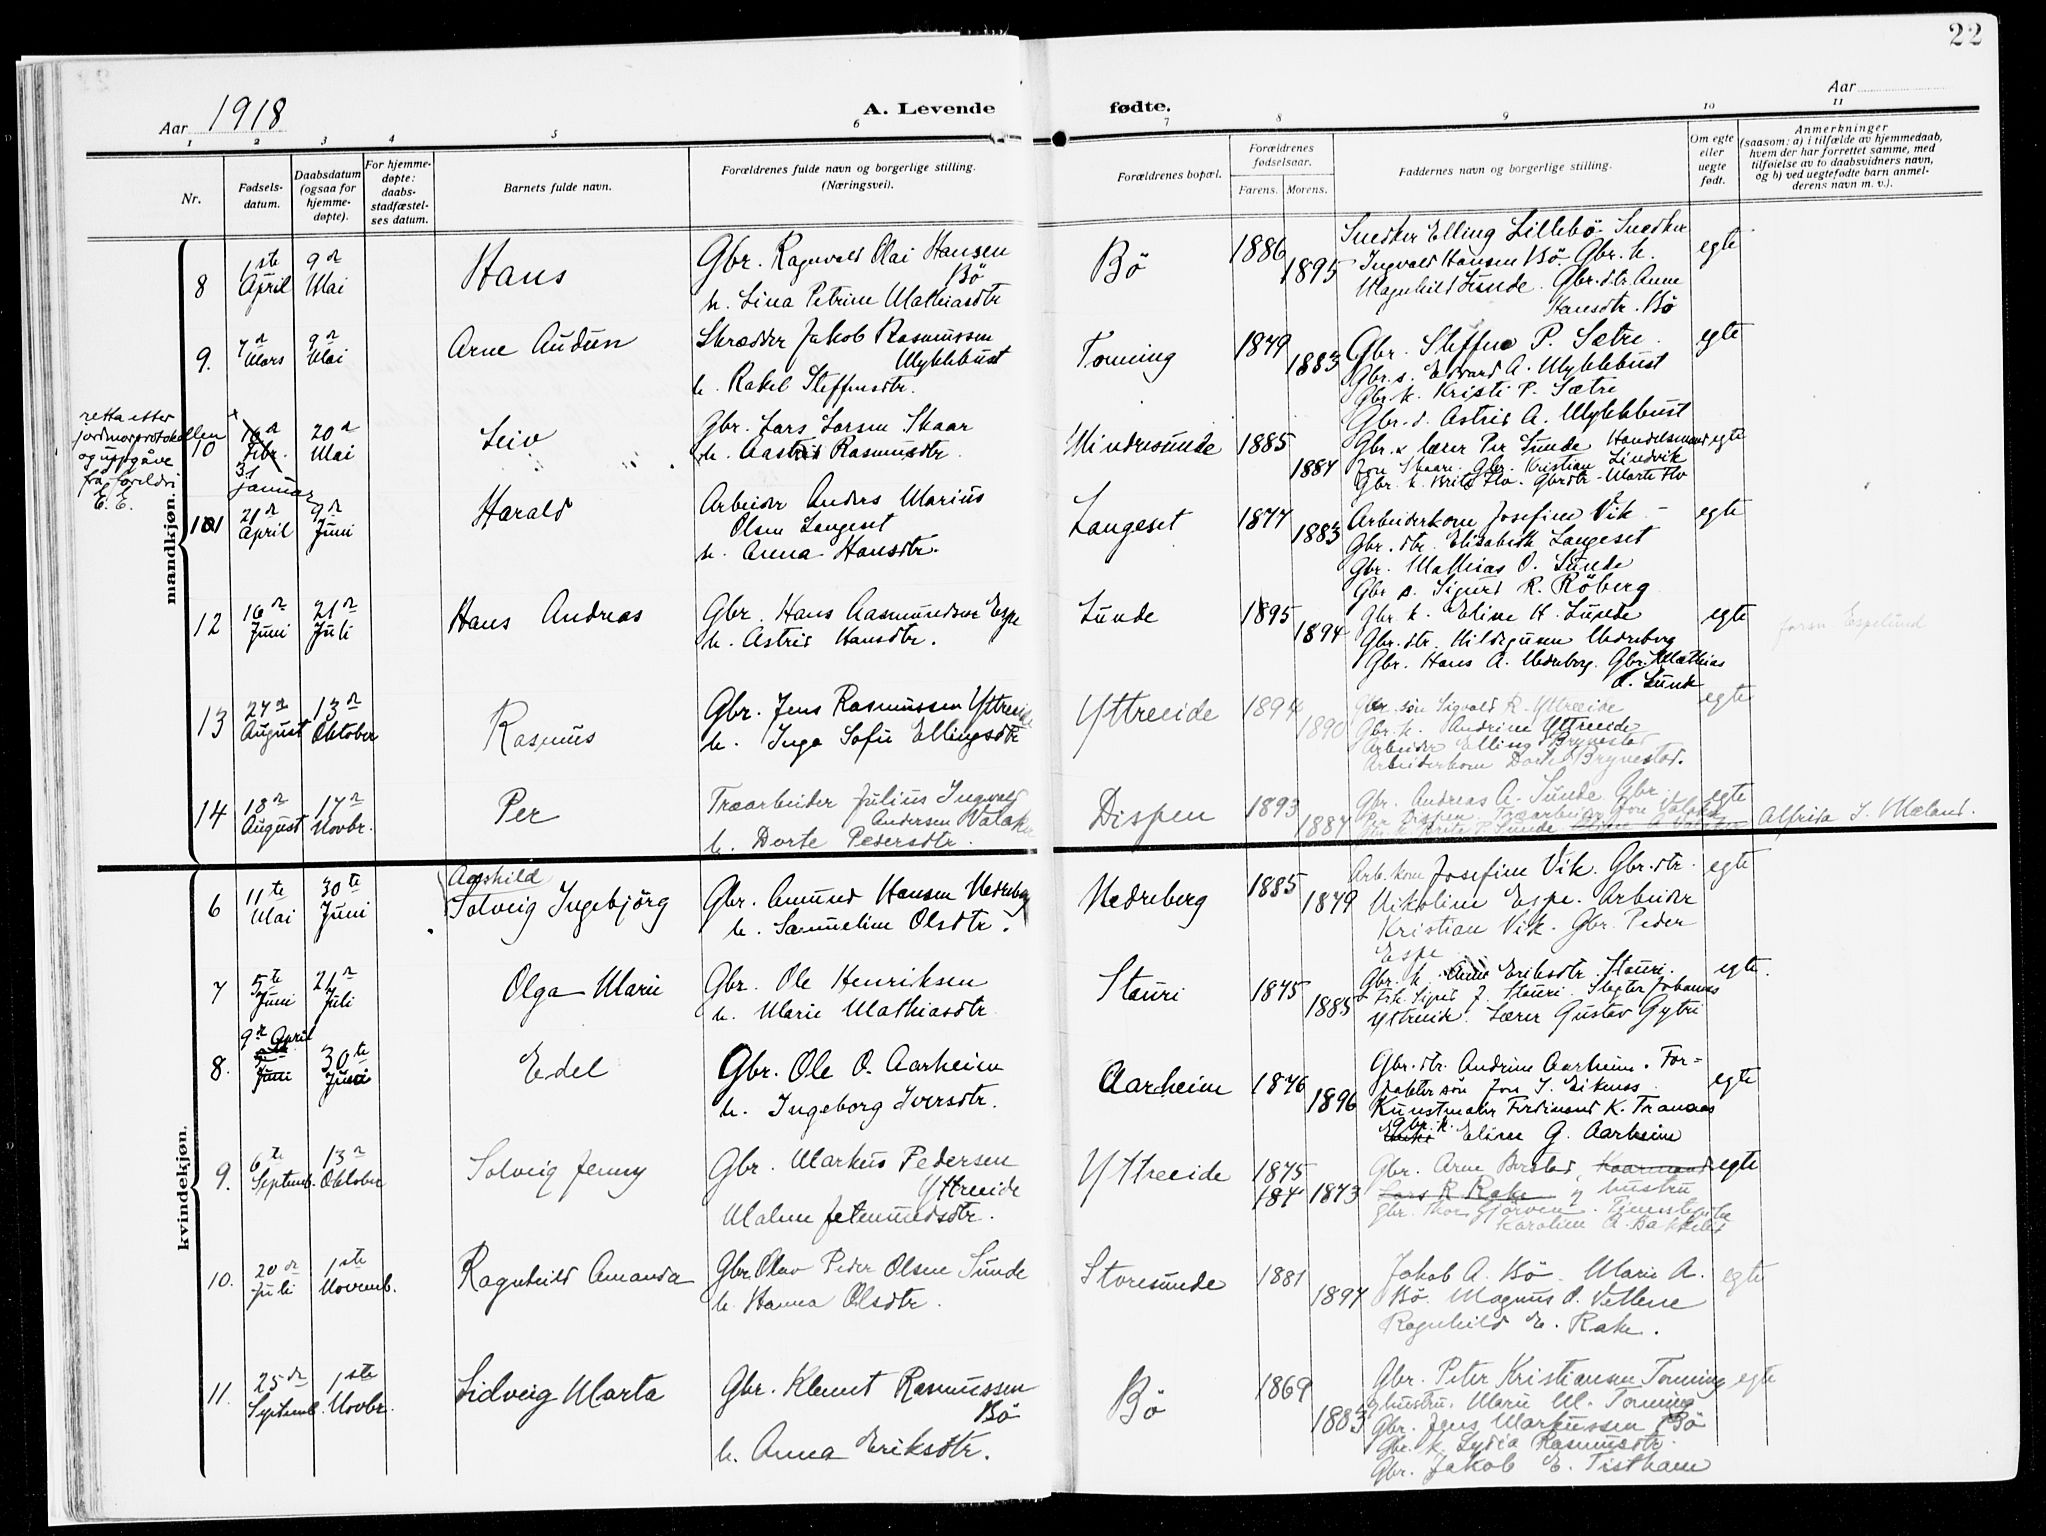 22
Aar 1918
A. Levende fødte.
Aar
1 2 3 4 5 6 7 8 9 10 11
Nr.
Fødsels-
datum.
Daabsdatum
(ogsaa for
hjemme-
døpte).
For hjemme-
døpte:
daabs-
stadfæstel-
ses datum.
Barnets fulde navn.
Forældrenes fulde navn og borgerlige stilling.
(Næringsvei).
Forældrenes bopæl.
Forældrenes
fødselsaar.
Farens. Morens.
Faddernes navn og borgerlige stilling.
Om egte
eller
uegte
født.
Anmerkninger
(saasom: a) i tilfælde av hjemmedaab,
hvem der har forrettet samme, med
tilføielse av to daabsvidners navn,
og b) ved uegtefødte barn anmel-
derens navn m. v.).
mandkjøn.
8
1ste April
9de Mai
Hans
Gbr. Ragnvald Olai Hansen
Bö
h. Lina Petrine Mathiasdtr
Bö
1886
1895
Snedker Elling Lillebö Snedker
Ingvald Hansen Bö. Gbr. k.
Magnhild Sunde. Gbr. dtr. Anne
Hansdtr. Bö
egte
9.
7de Mars
9de Mai
Arne Audun
Skrædder Jakob Rasmussen
Myklebust
h. Rakel Steffensdtr.
Tonning
1879
1883
Gbr. Steffen P. Sætre
Gbr. s. Edvard A. Myklebust
Gbr. k. Kristi P. Sætre
Gbr. d. Astrid A. Myklebust
egte
retta etter
jordmorprotokollen
og uppgåve
frå foreldri
E. E.
10
16de Febr.
31 januar
20de Mai
Leiv
Gbr. Lars Larsen Skaar
h. Aastrid Rasmusdtr.
Mindresunde
1885
1887
Gbr. & lærer Per Sunde Handelsmand
Jon Skaare. Gbr. Kristian Lindvik
Gbr. k. Brite Flo. Gbrdtr. Marte Flo
egte
11
21de April
9de Juni
Harald
Arbeider Anders Marius
Olsen Langeset
h. Anna Hansdtr.
Langeset
1877
1883
Arbeiderkone Josefine Vik
Gbr. dtr. Elisabeth Langeset
Gbr. Mathias O. Sunde
Gbr s. Sigurd R. Röberg
egte
12
16de Juni
21de Juli
Hans Andreas
Gbr. Hans Aasmundsen Espe
h. Astrid Hansdtr.
Sunde
1895
1894
Gbr k. Eline H. Sunde
Gbr. dtr. Hildegunn Nedreberg
Gbr. Hans A. Nedreberg. Gbr. Mathias
O. Sunde
egte
forsn. Espelund
13
27de August
13de Oktober
Rasmus
Gbr. Jens Rasmussen Yttreeide
h. Inga Sofie Ellingsdtr
Yttreeide
1894
1890
Gbr. sön Sigvald R. Yttreeide
Gbr. k. Andrine Yttreeide
Arbeider Elling Brynestad
Arbeiderkone Dorte Brynestad.
egte
14
18de August
17de Novbr.
Per
Træarbeider Julius Ingvald
Andersen Valaker
h. Dorte Pedersdtr.
Dispen
1893
1887
Gbr. Andreas A. Sunde Gbr.
Per Dispen. Træarbeider Jon Valaker
egte
Alfrida I. Mæland.
kvindekjøn.
6
11te Mai
30te Juni
Aashild
Solveig Ingebjörg
Gbr. Amund Hansen Nedreberg
h. Samueline Olsdtr.
Nedreberg
1885
1879
Arb. kone Josefine Vik. Gbr. dtr.
Nikoline Espe. Arbeider
Kristian Vik. Gbr. Peder
Espe
egte
7
5te Juni
21de Juli
Olga Marie
Gbr. Ole Henriksen
h. Marie Mathiasdtr.
Stauri
1875
1885
Gbr. k. Anne Eriksdtr. Stauri.
Frk. Sigrid J. Stauri. Slagter Johannes
Yttreeide. Lærer Gustav Gytri
egte.
8.
9de April
Juni
30te Juni
Edel
Gbr. Ole O. Aarheim
h. Ingeborg Iversdtr.
Aarheim
1876
1896
Gbr. dtr. Andrine Aarheim. For-
pakter sön Jon J. Eikenes.
Kunstmaler Ferdinand K. Tranaas
Gbr. k.
Eline G. Aarheim
egte
9.
6te Septemb.
13de Oktober
Solveig Jenny
Gbr. Markus Pedersen
Yttreeide
Malene Jetmundsdtr.
Yttreeide
1875
187
1873
Gbr. Arne Berstad, Kaarmand
Lars R. Rake & hustru
Gbr. Thor Gjörven. Tjenestepike
Karoline A. Bakkelid
egte
10.
20de Juli
1ste Novemb.
Ragnhild Amanda
Gbr. Olav Peder Olsen Sunde
h. Hanna Olsdtr.
Storesunde
1881
1897
Jakob A. Bö. Marie A.
Bö. Magnus O. Vellene
Ragnhild E. Rake.
egte
11.
25de Septemb.
1ste Novbr.
Sidveig Marta
Gbr. Klemet Rasmussen
Bö
h. Anna Eriksdtr.
Bö
1869
1883
Gbr. Peter Kristiansen Tonning
& hustru Marie M. Tonning
Gbr. Jens Markussen Bö
Gbr. k. Lydia Rasmusdtr.
Gbr. Jakob E. Tistham
egte